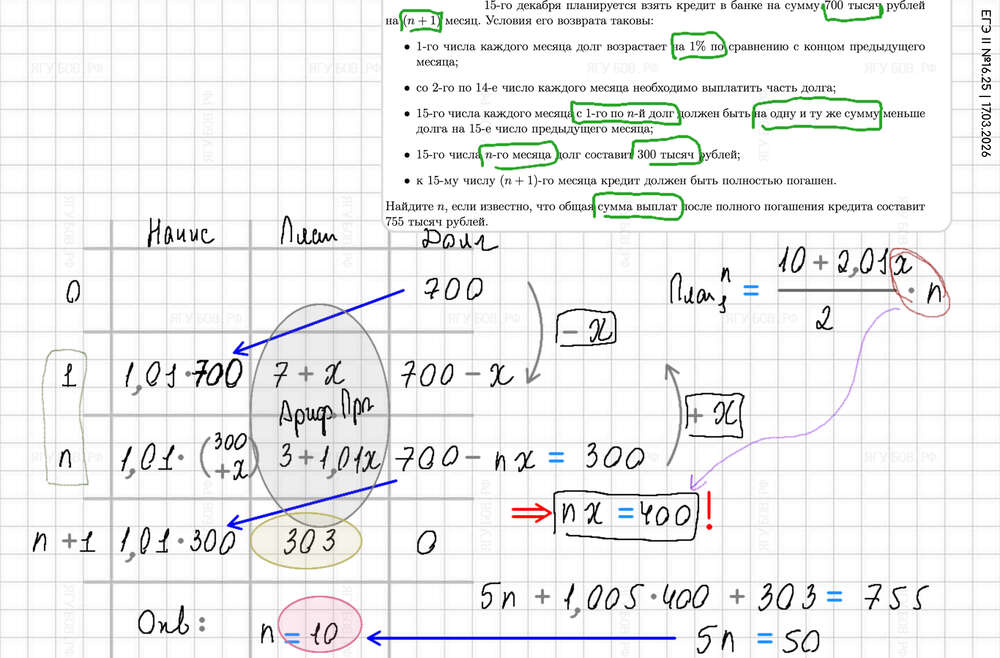 15-го декабря планируется взять кредит в банке на сумму 700 тысяч рублей
на (n + 1) месяц. Условия его возврата таковы:
• 1-го числа каждого месяца долг возрастает на 1% по сравнению с концом предыдущего
месяца;
• со 2-го по 14-е число каждого месяца необходимо выплатить часть долга;
• 15-го числа каждого месяца с 1-го по n-й долг должен быть на одну и ту же сумму меньше
долга на 15-е число предыдущего месяца;
• 15-го числа n-го месяца долг составит 300 тысяч рублей;
• к 15-му числу (n + 1)-го месяца кредит должен быть полностью погашен.
Найдите n, если известно, что общая сумма выплат после полного погашения кредита составит
755 тысяч рублей.
ЕГЭ II №16.25 | 17.03.2026
Начис Плат Долг
0 700
- x
Плат₁ⁿ = (10 + 2,01x)/2 · n
1 1,01·700 7 + x 700 - x
Ариф. Прг
+ x
n 1,01·(300 + x) 3+1,01x 700 - nx = 300
⇒ nx = 400 !
n +1 1,01·300 303 0
5n + 1,005·400 + 303 = 755
5n = 50
Отв: n = 10
ЯГУБОВ.РФ